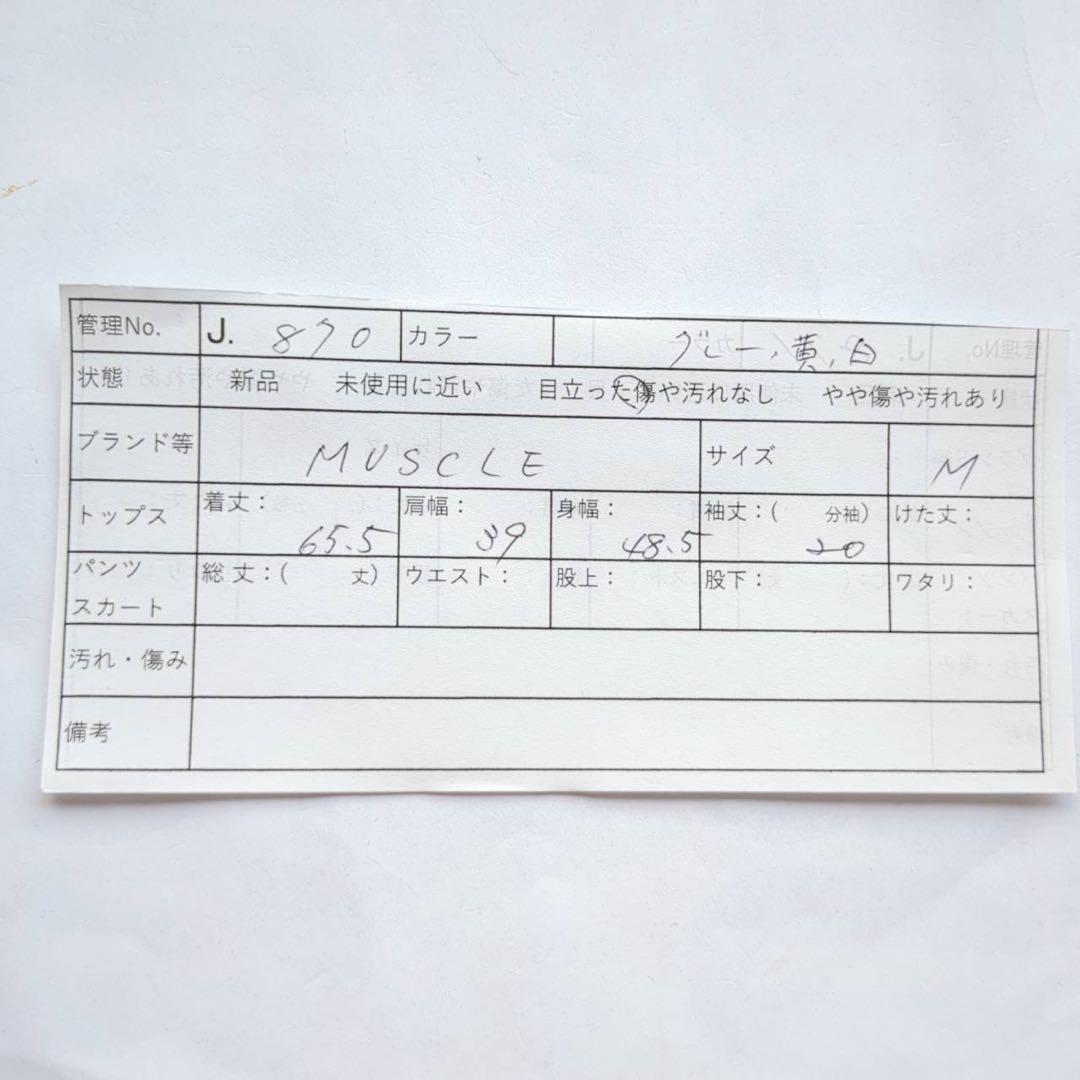 管理No. J. 870 カラー グレー、黄、白
状態 新品 未使用に近い 目立った傷や汚れなし やや傷や汚れあり
ブランド等 MUSCLE サイズ M
トップス 着丈： 65.5 肩幅： 39 身幅： 48.5 袖丈：( 分袖) 20 けた丈：
パンツ スカート 総丈：( 丈) ウエスト： 股上： 股下： ワタリ：
汚れ・傷み
備考